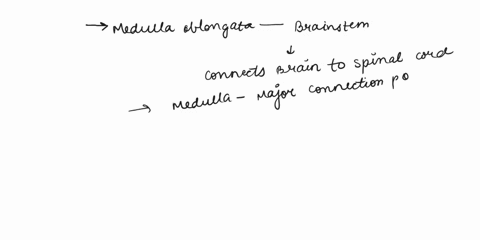 → Medulla oblongata — Brainstem
↓
connects Brain to spinal cord
→ Medulla - Major connection po